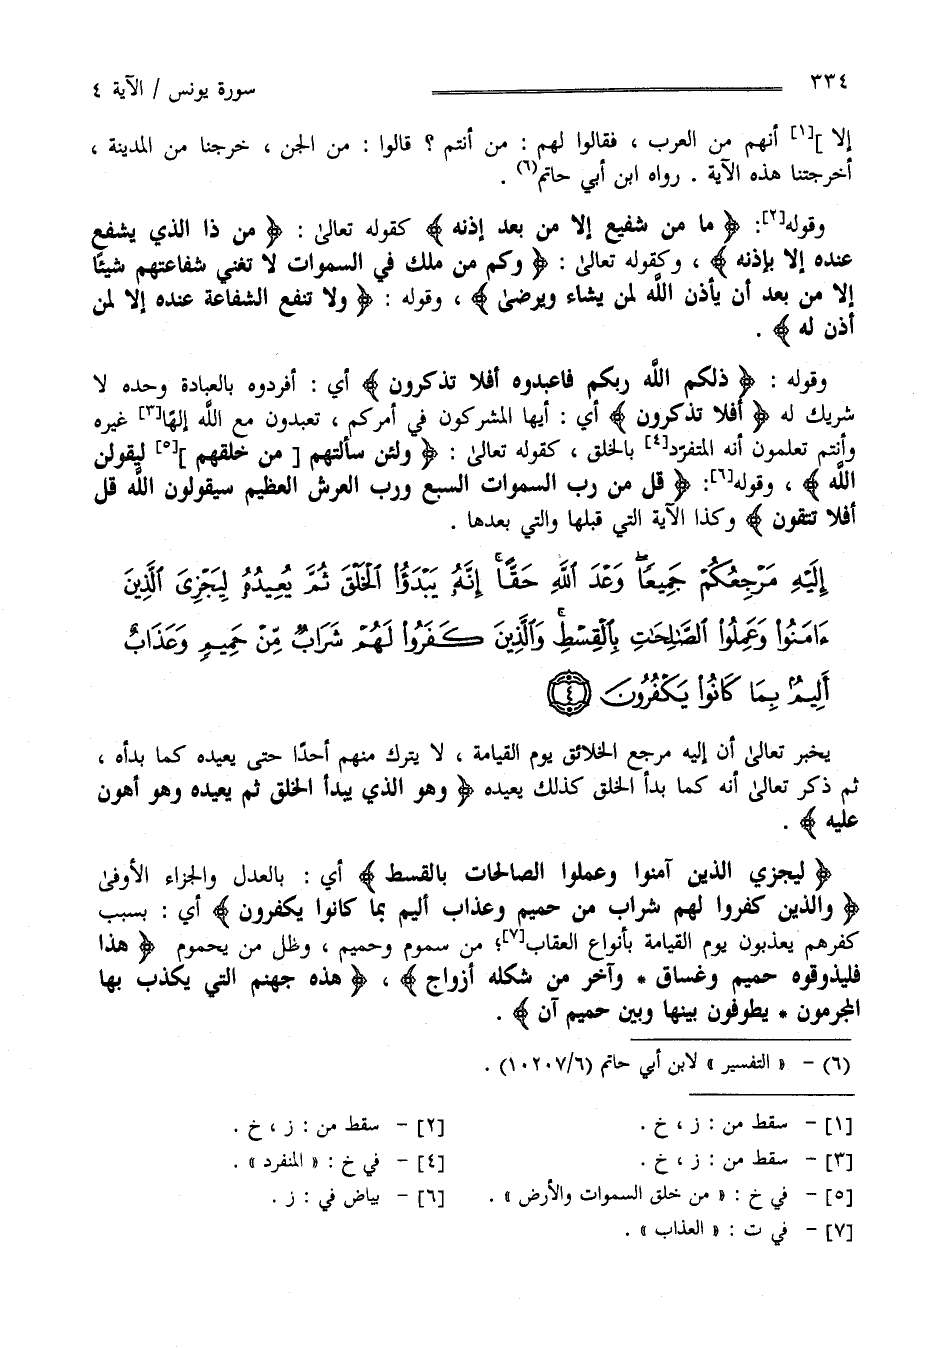 ٣٣٤ سورة يونس / الآية ٤
إلا ][١] أنهم من العرب ، فقالوا لهم : من أنتم ؟ قالوا : من الجن ، خرجنا من المدينة ،
أخرجتنا هذه الآية . رواه ابن أبي حاتم(٦) .
وقوله[٢]: ﴿ ما من شفيع إلا من بعد إذنه ﴾ كقوله تعالىٰ : ﴿ من ذا الذي يشفع
عنده إلا بإذنه ﴾ ، وكقوله تعالىٰ : ﴿ وكم من ملك في السموات لا تغني شفاعتهم شيئًا
إلا من بعد أن يأذن اللَّه لمن يشاء ويرضىٰ ﴾ ، وقوله : ﴿ ولا تنفع الشفاعة عنده إلا لمن
أذن له ﴾ .
وقوله : ﴿ ذلكم اللَّه ربكم فاعبدوه أفلا تذكرون ﴾ أي : أفردوه بالعبادة وحده لا
شريك له ﴿ أفلا تذكرون ﴾ أي : أيها المشركون في أمركم ، تعبدون مع اللَّه إلهًا[٣] غيره
وأنتم تعلمون أنه المتفرّد[٤] بالخلق ، كقوله تعالىٰ : ﴿ ولئن سألتهم [ من خلقهم ][٥] ليقولن
اللَّه ﴾ ، وقوله[٦]: ﴿ قل من رب السموات السبع ورب العرش العظيم سيقولون اللَّه قل
أفلا تتقون ﴾ وكذا الآية التي قبلها والتي بعدها .
إِلَيْهِ مَرْجِعُكُمْ جَمِيعًا ۖ وَعْدَ ٱللَّهِ حَقًّا ۚ إِنَّهُۥ يَبْدَؤُا۟ ٱلْخَلْقَ ثُمَّ يُعِيدُهُۥ لِيَجْزِىَ ٱلَّذِينَ
ءَامَنُوا۟ وَعَمِلُوا۟ ٱلصَّـٰلِحَـٰتِ بِٱلْقِسْطِ ۚ وَٱلَّذِينَ كَفَرُوا۟ لَهُمْ شَرَابٌ مِّنْ حَمِيمٍ وَعَذَابٌ
أَلِيمٌۢ بِمَا كَانُوا۟ يَكْفُرُونَ ٤
يخبر تعالىٰ أن إليه مرجع الخلائق يوم القيامة ، لا يترك منهم أحدًا حتى يعيده كما بدأه ،
ثم ذكر تعالىٰ أنه كما بدأ الخلق كذلك يعيده ﴿ وهو الذي يبدأ الخلق ثم يعيده وهو أهون
عليه ﴾ .
﴿ ليجزي الذين آمنوا وعملوا الصالحات بالقسط ﴾ أي : بالعدل والجزاء الأوفىٰ
﴿ والذين كفروا لهم شراب من حميم وعذاب أليم بما كانوا يكفرون ﴾ أي : بسبب
كفرهم يعذبون يوم القيامة بأنواع العقاب[٧]؛ من سموم وحميم ، وظل من يحموم ﴿ هذا
فليذوقوه حميم وغساق * وآخر من شكله أزواج ﴾ ، ﴿ هذه جهنم التي يكذب بها
المجرمون * يطوفون بينها وبين حميم آن ﴾ .
(٦) – « التفسير » لابن أبي حاتم (١٠٢٠٧/٦) .
[١] – سقط من : ز ، خ . [٢] – سقط من : ز ، خ .
[٣] – سقط من : ز ، خ . [٤] – في خ : « المنفرد » .
[٥] – في خ : « من خلق السموات والأرض » . [٦] – بياض في : ز .
[٧] – في ت : « العذاب » .